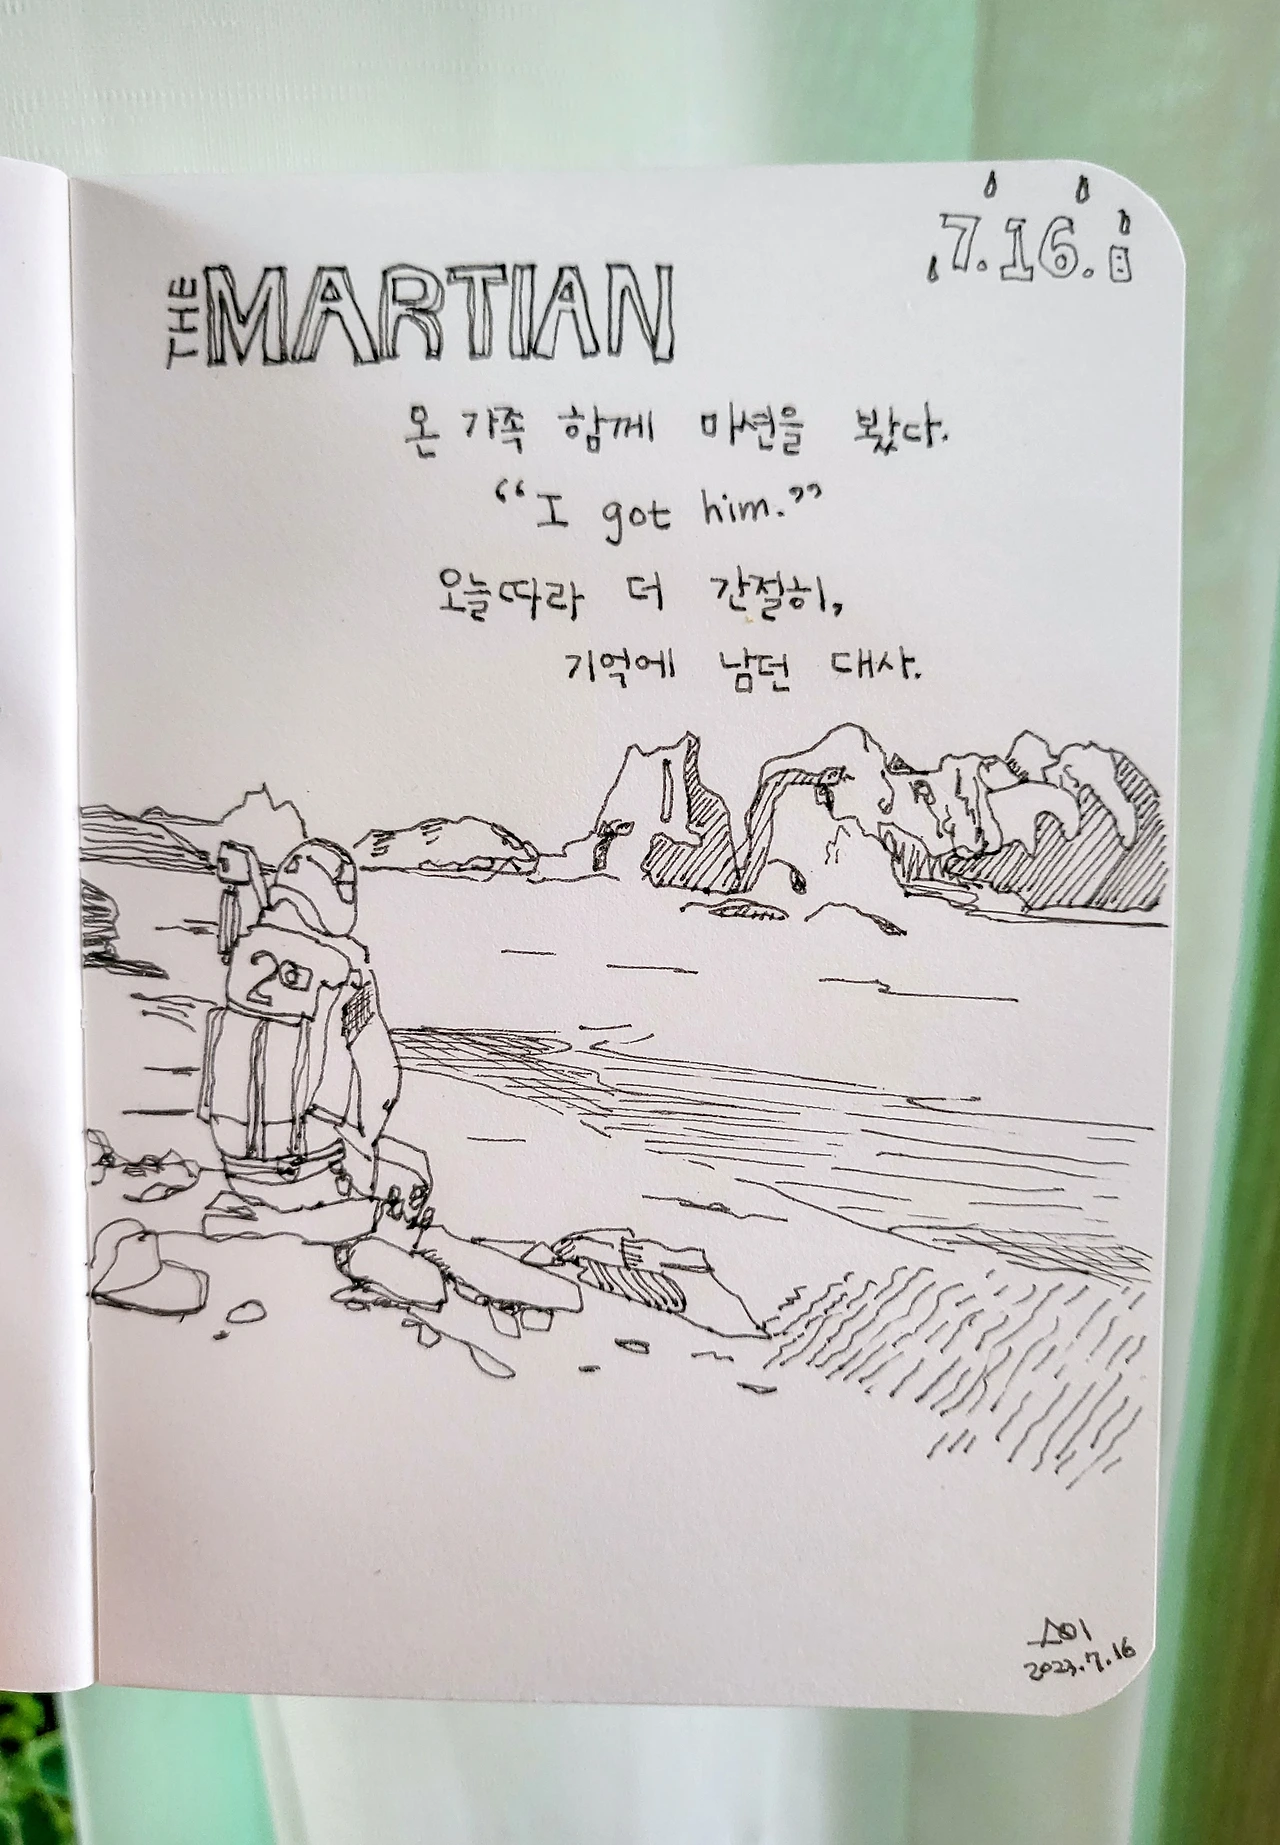 7.16.日
THE MARTIAN
온 가족 함께 마션을 봤다.
"I got him."
오늘따라 더 간절히,
기억에 남던 대사.
20
2023.7.16